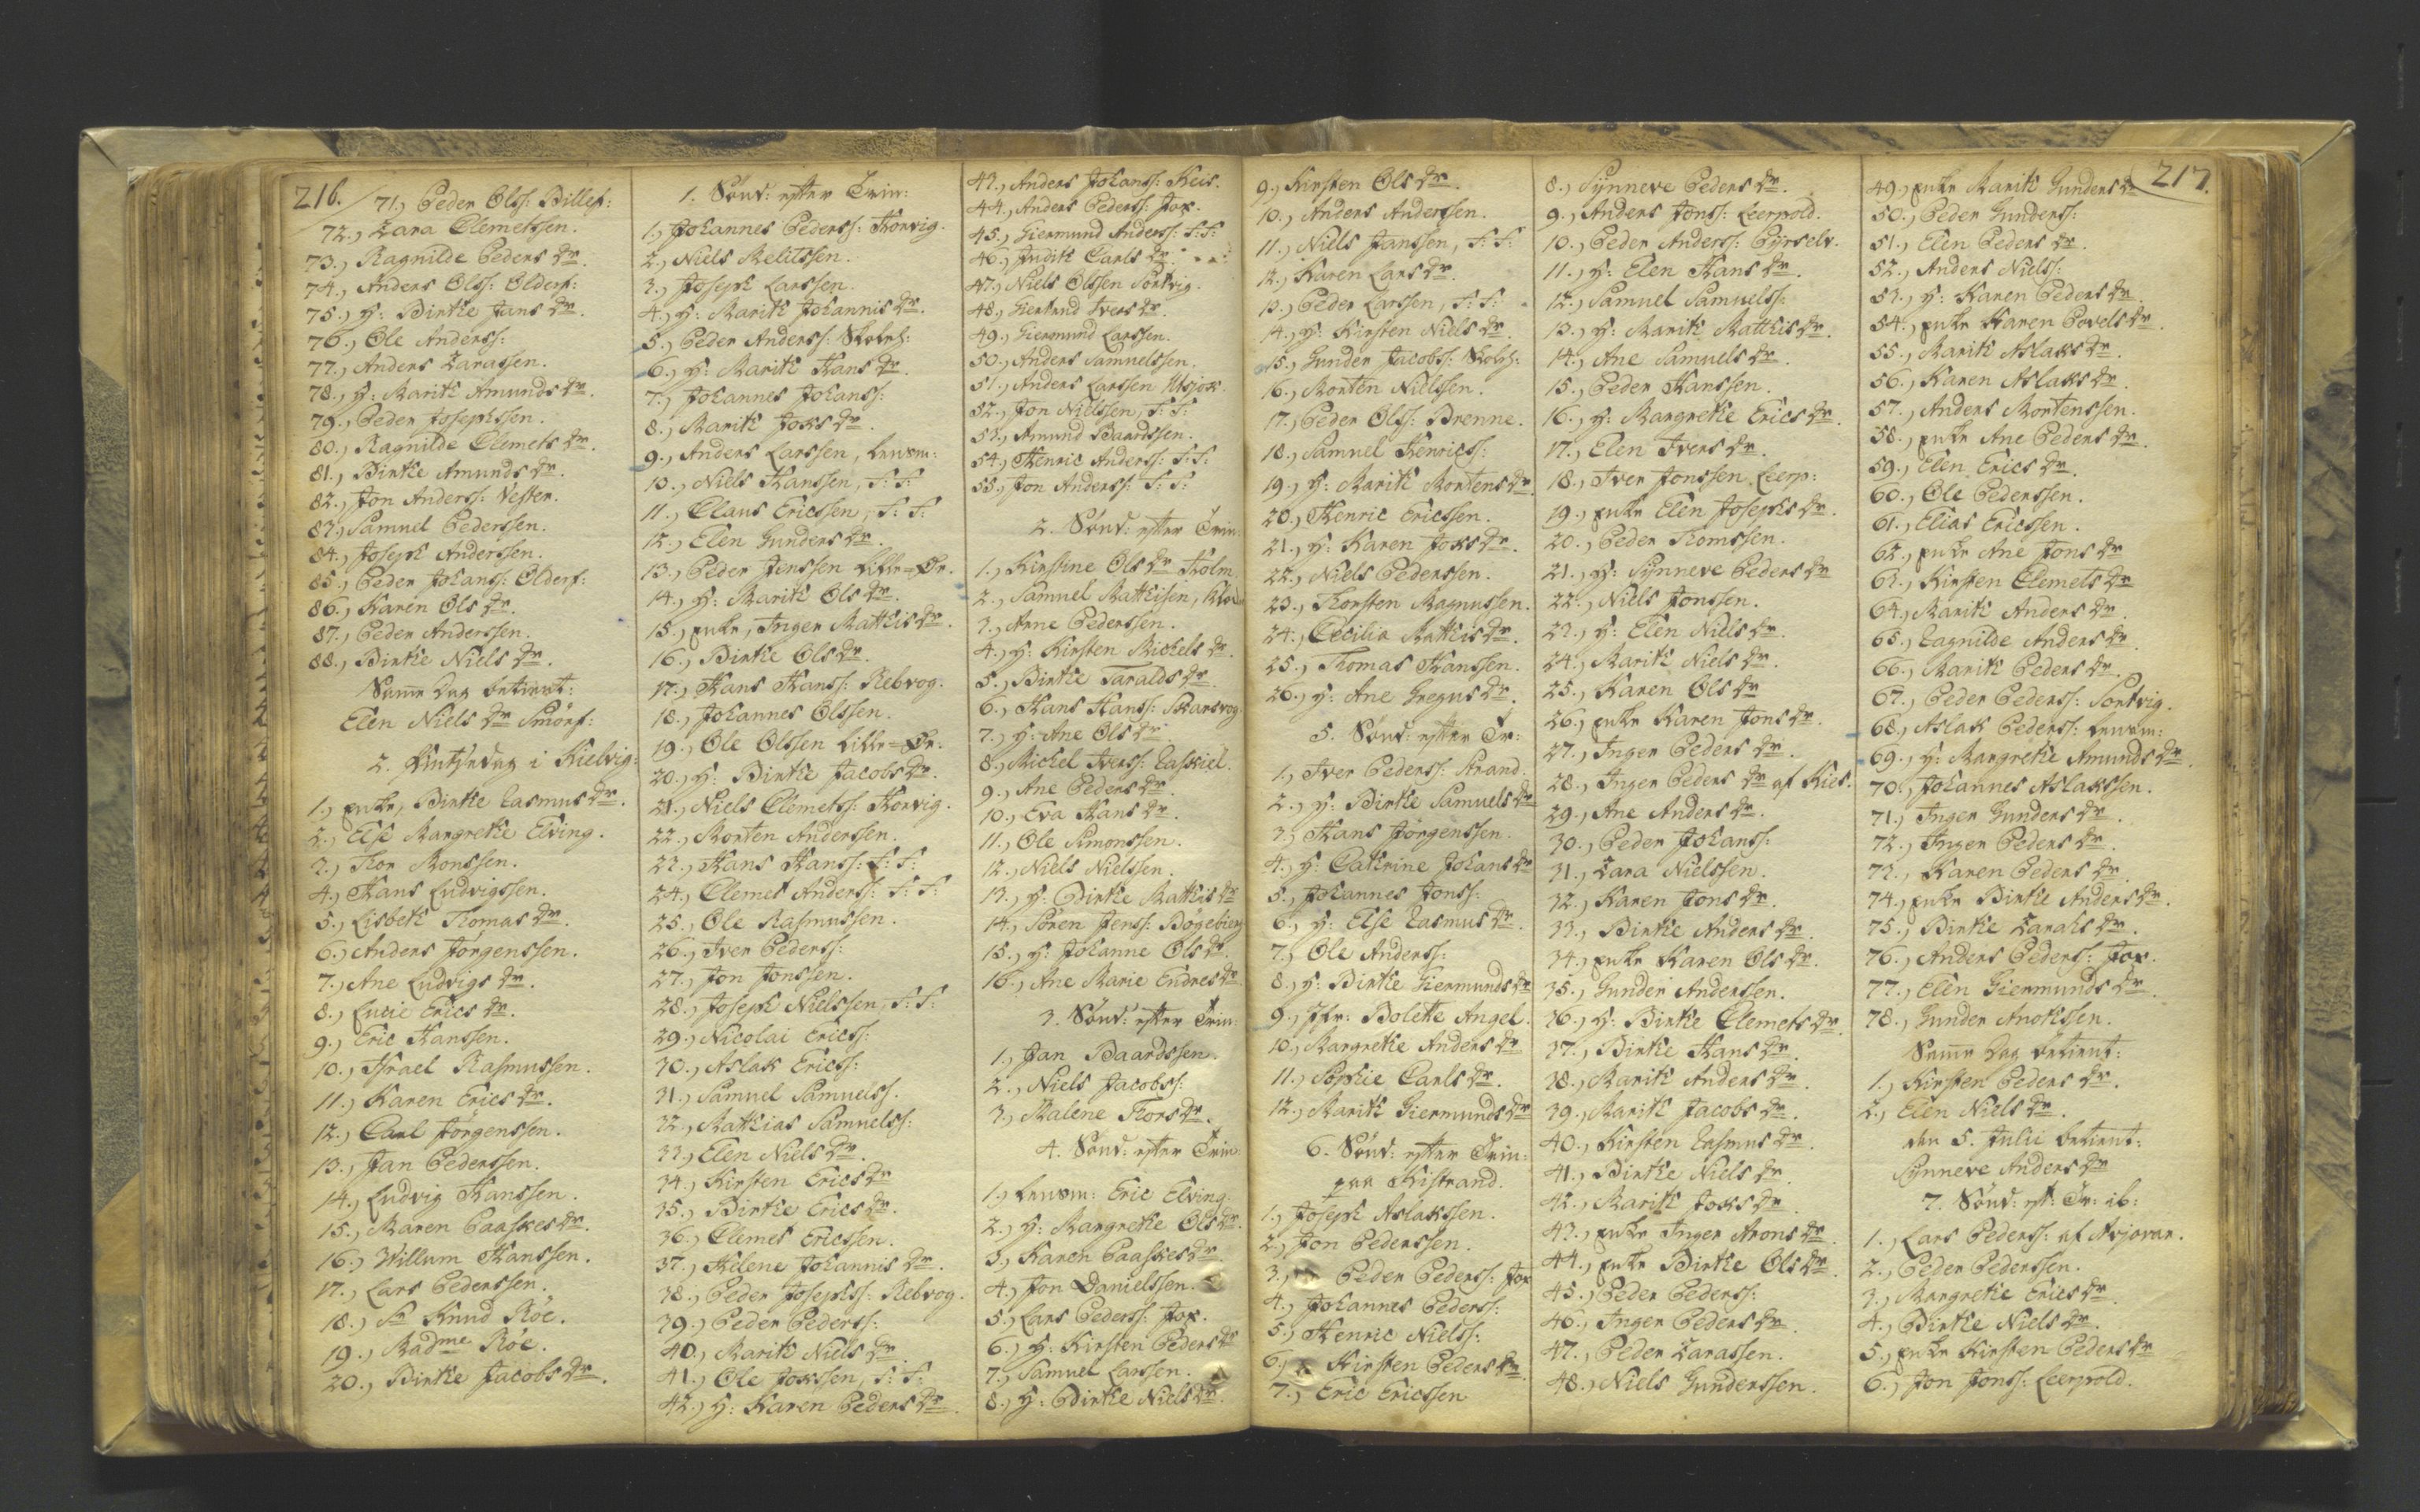 216.
71.) Peder Olsſ: Billef:
72.) Zara Clemetsſen.
73.) Ragnilde Peders dr.
74.) Anders Olsſ: Olderf:
75.) H: Birthe Jans dr.
76.) Ole Andersſ:
77.) Anders Zarasſen.
78.) H: Marith Amunds dr.
79.) Peder Josephsſen.
80.) Ragnilde Clemets dr.
81.) Birthe Amunds dr.
82.) Jon Andersſ: Vester.
83.) Samuel Pedersſen.
84.) Joseph Andersſen.
85.) Peder Johansſ: Olderf:
86.) Karen Ols dr.
87.) Peder Andersſen.
88.) Birthe Niels dr.
Samme Dag betient:
Elen Niels dr Smörf:
2. Pintsedag i Kielvig:
1.) enke, Birthe Rasmus dr.
2.) Else Margrethe Elving.
3.) Thor Monsſen.
4.) Hans Ludvigsſen.
5.) Lisbeth Thomas dr.
6.) Anders Jörgensſen.
7.) Ane Ludvigs dr.
8.) Lucie Erics dr.
9.) Eric Hansſen.
10.) Israel Rasmusſen.
11.) Karen Erics dr.
12.) Carl Jörgensſen.
13.) Jan Pedersſen.
14.) Ludvig Hansſen.
15.) Maren Paaskes dr.
16.) Willum Hansſen.
17.) Lars Pedersſen.
18.) Sr Knud Röe.
19.) Madme Röe.
20.) Birthe Jacobs dr.
1. Sönd: efter Trin:
1.) Johannes Pedersſ: Korvig.
2.) Niels Melitsſen.
3.) Joseph Larsſen.
4.) H: Marith Johannis dr.
5.) Peder Andersſ: Skoleh:
6.) H: Marith Hans dr.
7.) Johannes Johansſ:
8.) Marith Joks dr.
9.) Anders Larsſen, Lensm:
10.) Niels Hansſen, S: F:
11.) Claus Ericsſen, S: F:
12.) Elen Gunders dr.
13.) Peder Jensſen Lille=Ör.
14.) H: Marith Ols dr.
15.) enke, Inger Mathis dr.
16.) Birthe Ols dr.
17.) Hans Hansſ: Rebvog.
18.) Johannes Olsſen.
19.) Ole Olsſen Lille=Ör:
20.) H: Birthe Jacobs dr.
21.) Niels Clemetsſ: Korvig.
22.) Morten Andersſen.
23.) Hans Hansſ: S: F:
24.) Clemet Andersſ: S: F:
25.) Ole Rasmusſen.
26.) Iver Pedersſ:
27.) Jon Jonsſen.
28.) Joseph Nielsſen, S: F:
29.) Nicolai Ericsſ:
30.) Aslak Ericsſ:
31.) Samuel Samuelsſ.
32.) Mathias Samuelsſ:
33.) Elen Niels dr.
34.) Kirsten Erics dr
35.) Birthe Erics dr.
36.) Clemet Ericsſen.
37.) Helene Johannis dr.
38.) Peder Josephsſ: Rebvog.
39.) Peder Pedersſ:
40.) Marith Niels dr
41.) Ole Joksſen, S: F:
42.) H: Karen Peders dr.
43.) Anders Johansſ: Keis.
44.) Anders Pedersſ: Jox.
45.) Giermund Andersſ: S: F:
46.) Judith Carls dr.
47.) Niels Olsſen Sortvig.
48.) Giertrud Ivers dr.
49.) Giermund Larsſen.
50.) Anders Samuelsſen.
51.) Anders Larsſen Utsjok.
52.) Jon Nielsſen, S: F:
53.) Amund Baardsſen.
54.) Henric Andersſ: S: F:
55.) Jon Andersſ: S: F:
2. Sönd: efter Trin:
1.) Kirstine Ols dr Holm.
2.) Samuel Mathisen,
3.) Arne Pedersſen.
4.) H: Kirsten Michels dr.
5.) Birthe Taralds dr.
6.) Hans Hansſ: Skarsvog.
7.) H: Ane Ols dr.
8.) Michel Iversſ: Easkiel.
9.) Ane Peders dr.
10.) Eva Hans dr.
11.) Ole Simonsſen.
12.) Niels Nielsſen.
13.) H: Birthe Mathis dr
14.) Sören Jensſ: Bögebierg
15.) H: Johanne Ols dr.
16.) Ane Marie Endres dr.
3. Sönd: efter Trin:
1.) Jan Baardsſen.
2.) Niels Jacobsſ:
3.) Malene Thors dr.
4. Sönd: efter Trin:
1.) Lensm: Eric Elving:
2.) H: Margrethe Ols dr.
3.) Karen Paaskes dr
4.) Jon Danielsſen.
5.) Lars Pedersſ: Jox.
6.) H: Kirsten Peders dr
7.) Samuel Larsſen.
8.) H: Birthe Niels dr.
217.
9.) Kirsten Ols dr.
10.) Anders Andersſen.
11.) Niels Jansſen, S: F:
12.) Karen Lars dr.
13.) Peder Larsſen, S: F:
14.) H: Kirsten Niels dr.
15.) Gunder Jacobsſ: Skoleh:
16.) Morten Nielsſen.
17.) Peder Olsſ: Brenne.
18.) Samuel Henricsſ:
19.) H: Marith Mortens dr.
20.) Henric Ericsſen.
21.) H: Karen Joks dr.
22.) Niels Pedersſen.
23.) Thorsten Magnusſen.
24.) Cecilia Mathis dr.
25.) Thomas Hansſen.
26.) H: Ane Gregus dr.
5. Sönd: efter Tr:
1.) Iver Pedersſ: Strand.
2.) H: Birthe Samuels dr
3.) Hans Jörgensſen.
4.) H: Cathrine Johans dr
5.) Johannes Jonsſ:
6.) H: Else Rasmus dr.
7.) Ole Andersſ:
8.) H: Birthe Giermunds dr
9.) Jfr: Bolette Angel.
10.) Margrethe Anders dr
11.) Sophie Carls dr.
12.) Marith Giermunds dr
6. Sönd: efter Trin:
paa Kistrand.
1.) Joseph Aslaksſen.
2.) Jon Pedersſen.
3.) Peder Pedersſ: Jox
4.) Johannes Pedersſ:
5.) Henric Nielsſ:
6.) Kirsten Peders dr.
7.) Eric Ericsſen
8.) Synneve Peders dr.
9.) Anders Jonsſ: Leerpold.
10.) Peder Andersſ: Pÿrselv.
11.) H: Elen Hans dr.
12.) Samuel Samuelsſ:
13.) H: Marith Matthis dr.
14.) Ane Samuels dr.
15.) Peder Hansſen.
16.) H: Margrethe Erics dr.
17.) Elen Ivers dr.
18.) Iver Jonsſen Leerp:
19.) enke Elen Josephs dr.
20.) Peder Thomsſen.
21.) H: Synneve Peders dr
22.) Niels Jonsſen.
23.) H: Elen Niels dr.
24.) Marith Niels dr.
25.) Karen Ols dr
26.) enke Karen Jons dr.
27.) Inger Peders dr.
28.) Inger Peders dr af Kies.
29.) Ane Anders dr.
30.) Peder Johansſ:
31.) Zara Nielsſen.
32.) Karen Jons dr.
33.) Birthe Anders dr.
34.) enke Karen Ols dr.
35.) Gunder Andersſen.
36.) H: Birthe Clemets dr.
37.) Birthe Hans dr.
38.) Marith Anders dr.
39.) Marith Jacobs dr.
40.) Kirsten Rasmus dr.
41.) Birthe Niels dr.
42.) Marith Joks dr.
43.) enke Inger Arons dr.
44.) enke Birthe Ols dr.
45.) Peder Pedersſ:
46.) Inger Peders dr.
47.) Peder Zarasſen.
48.) Niels Gundersſen.
49.) enke Marith Gunders dr
50.) Peder Gundersſ:
51.) Elen Peders dr.
52.) Anders Nielsſ:
53.) H: Karen Peders dr.
54.) enke Karen Povels dr.
55.) Marith Aslaks dr.
56.) Karen Aslaks dr.
57.) Anders Mortensſen.
58.) enke Ane Peders dr.
59.) Elen Erics dr.
60.) Ole Pedersſen.
61.) Elias Ericsſen.
62.) enke Ane Jons dr
63.) Kirsten Clemets dr
64.) Marith Anders dr.
65.) Ragnilde Anders dr.
66.) Marith Peders dr.
67.) Peder Pedersſ: Sortvig.
68.) Aslak Pedersſ: Lensm:
69.) H: Margrethe Amunds dr.
70.) Johannes Aslaksſen.
71.) Inger Gunders dr.
72.) Inger Peders dr.
73.) Karen Peders dr.
74.) enke Birthe Anders dr.
75.) Birthe Zarahs dr.
76.) Anders Pedersſ: Jox.
77.) Elen Giermunds dr.
78.) Gunder Anoksſen.
Samme Dag betient:
1.) Kirsten Peders dr.
2.) Elen Niels dr.
den 5. Julii betient:
Synneve Anders dr
7. Sönd: eft: Tr: ib:
1.) Lars Pedersſ: af Avjovar.
2.) Peder Pedersſen.
3.) Margrethe Erics dr.
4.) Birthe Niels dr.
5.) enke Kirsten Peders dr
6.) Jon Jonsſ: Leerpold.